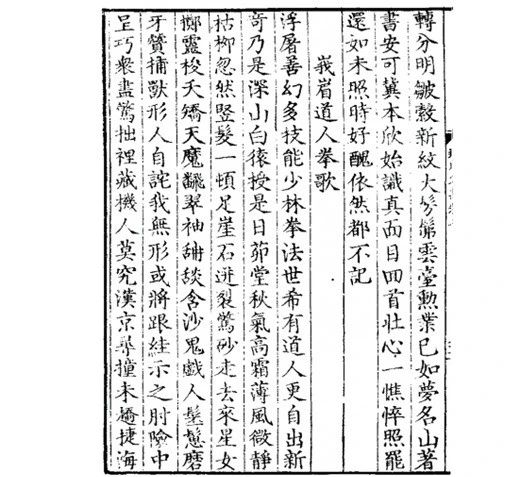 轉分明皺縠新紋大髣髴雲臺勲業已如夢名山著
書安可冀本欣始識真面目回首壯心一憔悴照罷
還如未照時好醜依然都不記
峩眉道人拳歌
浮屠善幻多技能少林拳法世希有道人更自出新
竒乃是深山白猿授是日茆堂秋氣高霜薄風微靜
枯柳忽然竪髮一頓足崖石迸裂驚砂走去來星女
擲靈梭夭矯天魔飜翠袖舑舕含沙鬼戲人髬髵磨
牙贙捕獸形人自詫我無形或將跟絓示之肘險中
呈巧衆盡驚拙裡藏機人莫究漢京尋撞未趫捷海